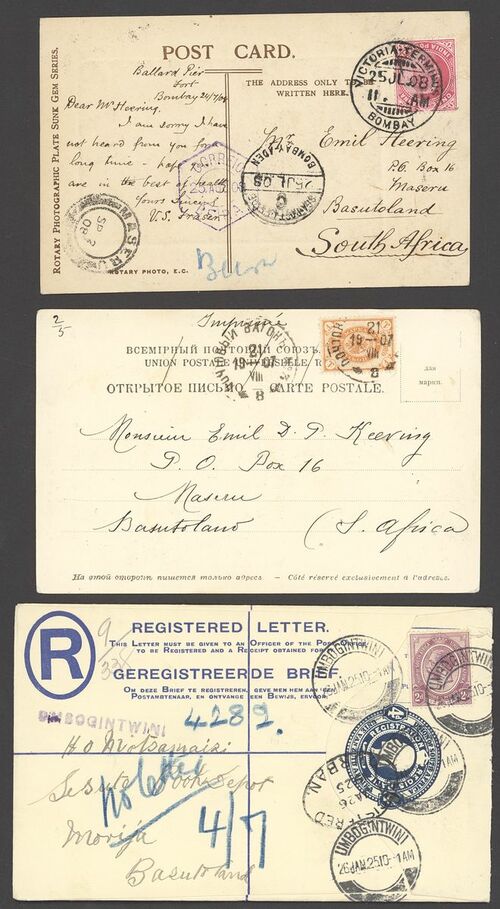 ROTARY PHOTOGRAPHIC PLATE SUNK GEM SERIES.
POST CARD.
Ballard Pier
Fort
Bombay 24/7/08
THE ADDRESS ONLY TO BE
WRITTEN HERE.
VICTORIA TERMINUS
25 JL 08
11 AM
BOMBAY
Dear Mr Heering.
I am sorry I have
not heard from you for a
long time - hope you
are in the best of health
Yours Sincerely
V.S. Fraser
CORREIO
BOMBAY-ADEN
25 JL 08
C
Mr Emil Heering
P.O. Box 16
Maseru
Basutoland
South Africa
MASERU
SP 2
08
ROTARY PHOTO, E.C.
2/5
Imprimé
ВСЕМІРНЫЙ ПОЧТОВЫЙ СОЮЗЪ.
UNION POSTALE UNIVERSELLE. R
ОТКРЫТОЕ ПИСЬМО. CARTE POSTALE.
ПОЧТОВЫЙ ВАГОНЪ
21
19 07
VIII
8
21
19 07
VIII
8
для
марки.
Monsieur Emil D. P. Keering
P. O. Box 16
Maseru
Basutoland (S. Africa)
На этой сторонѣ пишется только адресъ — Côté réservé exclusivement à l'adresse.
R
REGISTERED LETTER.
THIS LETTER MUST BE GIVEN TO AN OFFICER OF THE POST OFFICE
TO BE REGISTERED AND A RECEIPT OBTAINED FOR IT.
GEREGISTREERDE BRIEF.
OM DEZE BRIEF TE REGISTREREN, GEVE MEN HEM AAN EEN
POSTAMBTENAAR, EN ONTVANGE EEN BEWIJS, ERVOOR.
UMBOGINTWINI
4289.
UMBOGINTWINI
UMBOGINTWINI
H. O Motsamaizi
Sesuto Book Depot
Morija
Basutoland
4/7
UMBOGINTWINI
26 JAN 25 10 - 1 AM